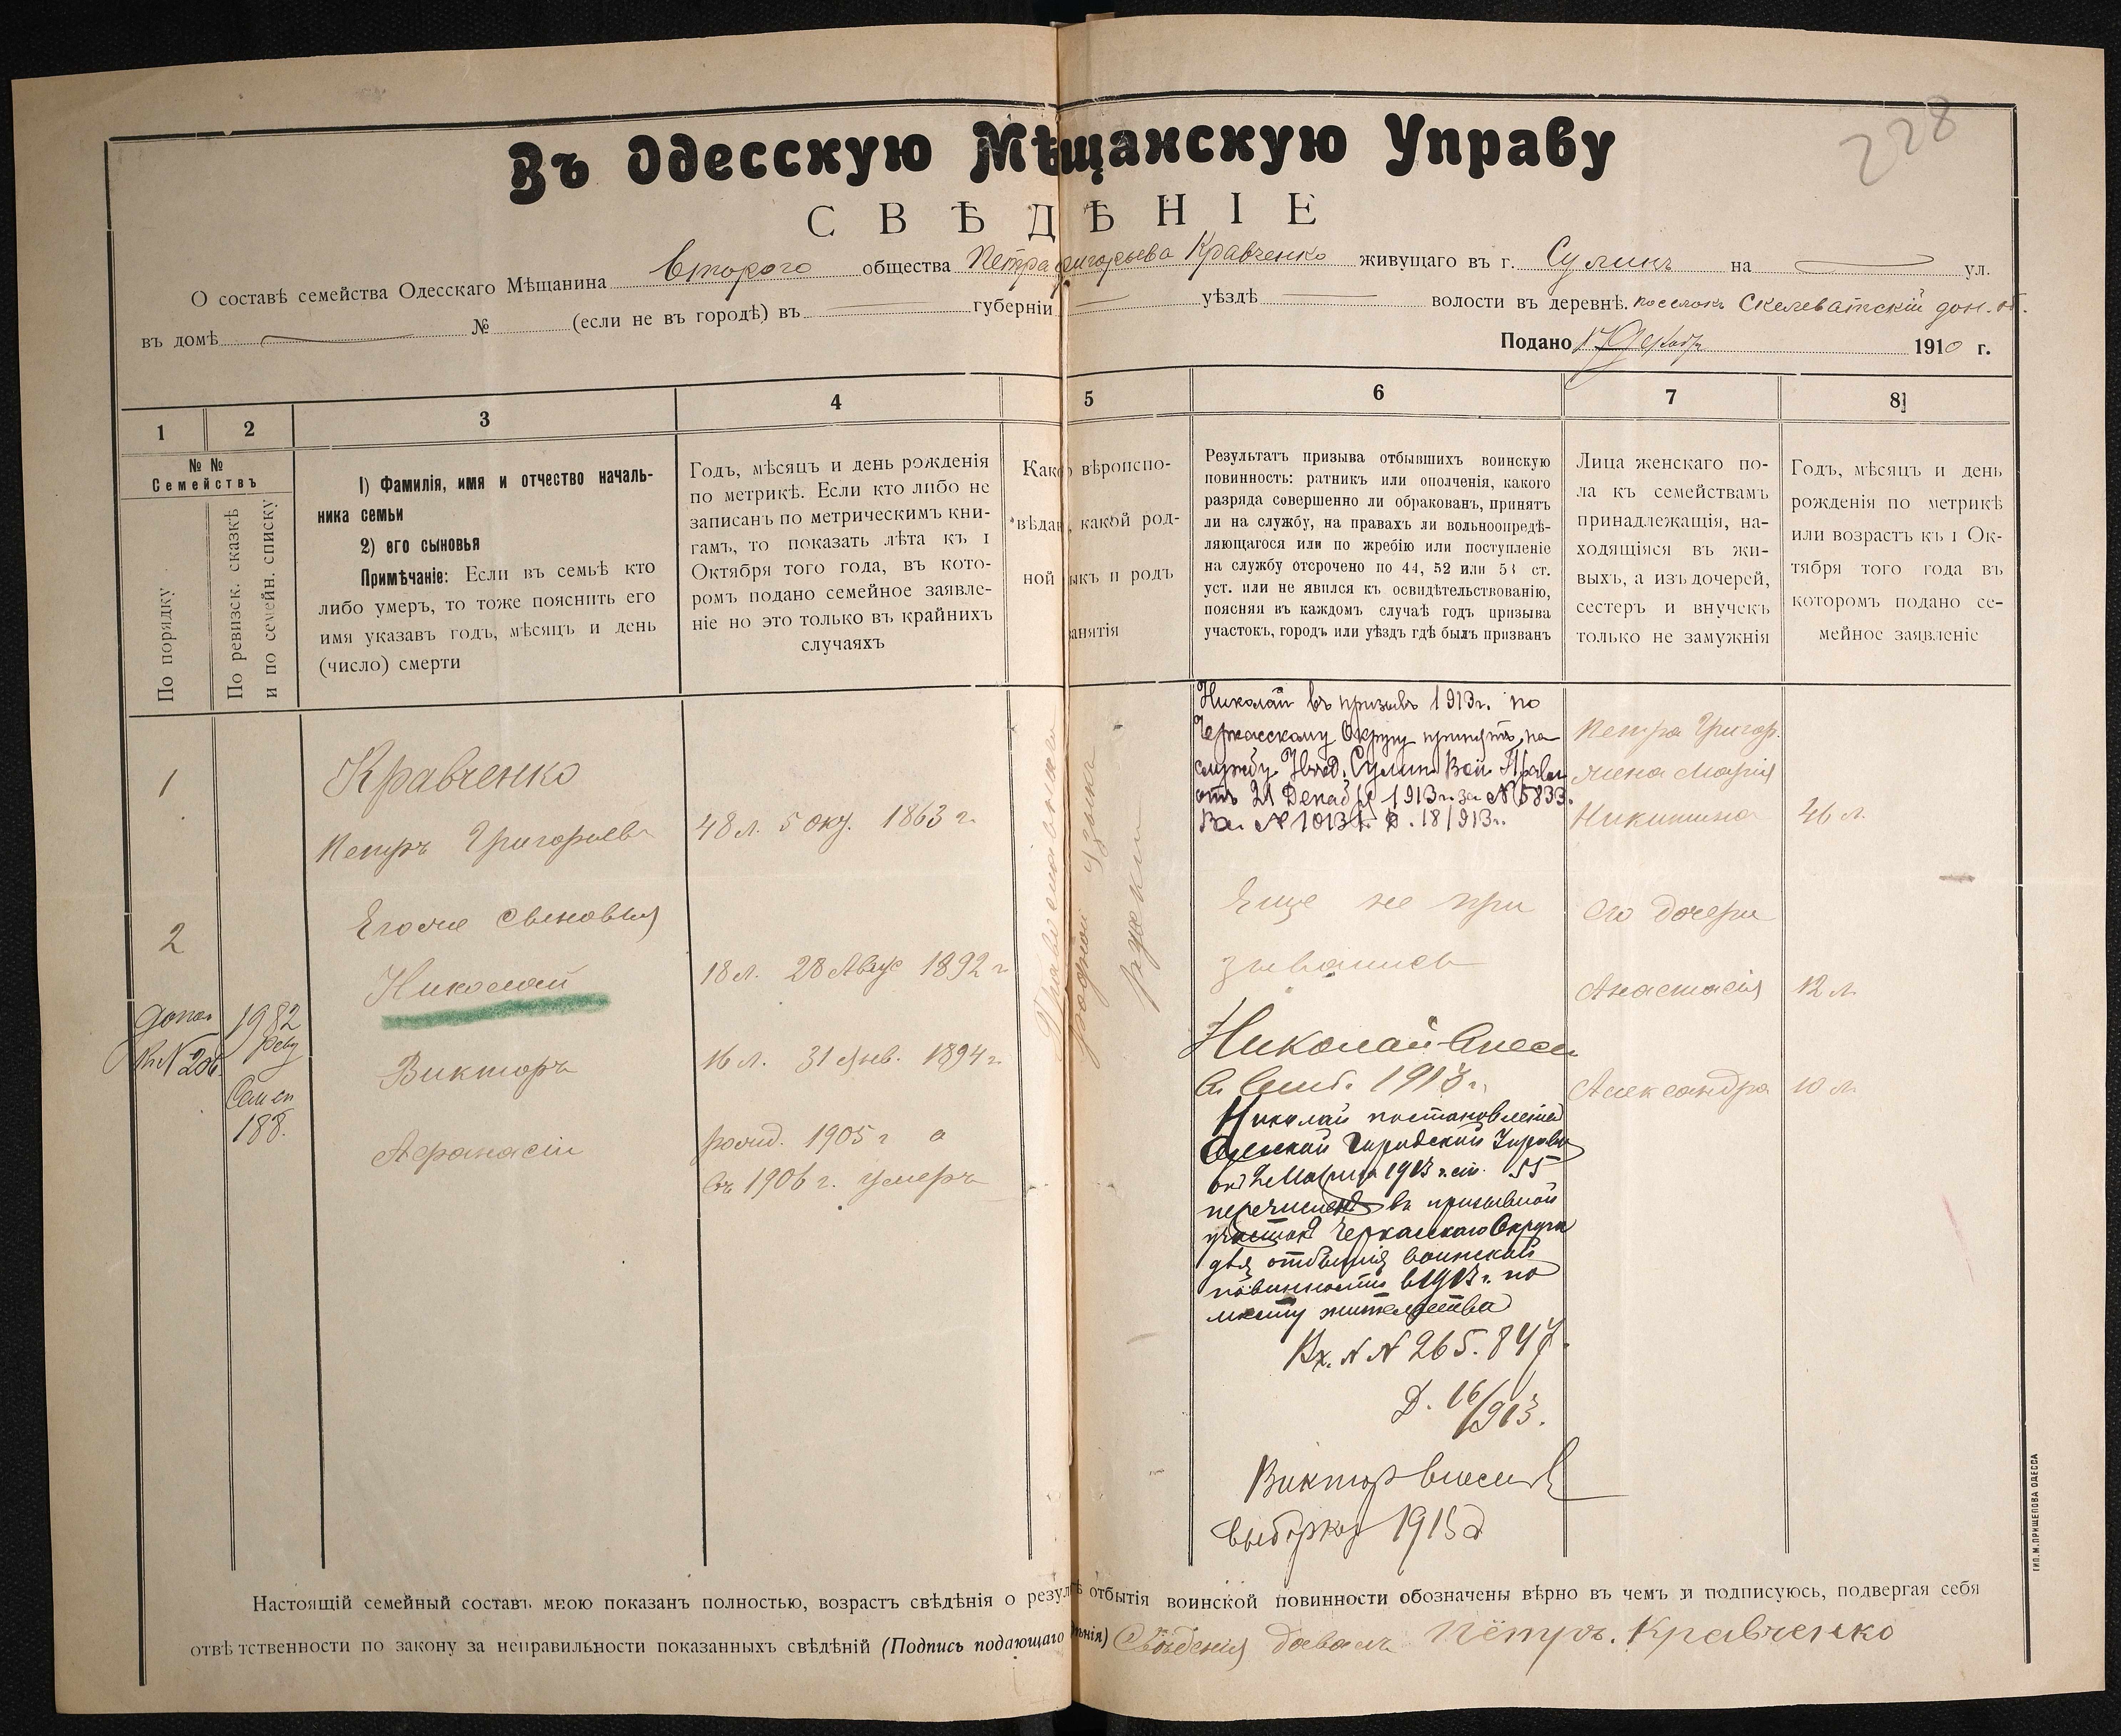 228
Въ Одесскую Мѣщанскую Управу
СВѢДѢНІЕ
О составѣ семейства Одесскаго Мѣщанина второго общества Петра Григорьева Кравченко живущаго въ г. Сулинъ на ул.
въ домѣ № (если не въ городѣ) въ губерніи уѣздѣ волости въ деревнѣ. поселокъ Скелеватскій дон. об.
Подано 17 Декабр 1910 г.
1 2 3 4 5 6 7 8
№ №
Семействъ
По порядку
По ревизск. сказкѣ
и по семейн. списку
1) Фамилія, имя и отчество началь-
ника семьи
2) его сыновья
Примѣчаніе: Если въ семьѣ кто
либо умеръ, то тоже пояснить его
имя указавъ годъ, мѣсяцъ и день
(число) смерти
Годъ, мѣсяцъ и день рожденія
по метрикѣ. Если кто либо не
записанъ по метрическимъ кни-
гамъ, то показать лѣта къ 1
Октября того года, въ кото-
ромъ подано семейное заявле-
ніе но это только въ крайнихъ
случаяхъ
Како вѣроиспо-
вѣдан, какой род-
ной ыкъ и родъ
анятія
Результатъ призыва отбывшихъ воинскую
повинность: ратникъ или ополченія, какого
разряда совершенно ли обракованъ, принятъ
ли на службу, на правахъ ли вольноопредѣ-
ляющагося или по жребію или поступленіе
на службу отсрочено по 44, 52 или 53 ст.
уст. или не явился къ освидѣтельствованію,
поясняя въ каждомъ случаѣ годъ призыва
участокъ, городъ или уѣздъ гдѣ былъ призванъ
Лица женскаго по-
ла къ семействамъ
принадлежащія, на-
ходящіяся въ жи-
выхъ, а изъ дочерей,
сестеръ и внучекъ
только не замужнія
Годъ, мѣсяцъ и день
рожденія по метрикѣ
или возрастъ къ 1 Ок-
тября того года въ
которомъ подано се-
мейное заявленіе
1
Кравченко
Петръ Григорьевъ
48 л. 5 1863 г.
2
Его же сыновья
Николай
18 л. 28 Авгус 1892 г
Викторъ
16 л. 31 Янв. 1894 г.
Афанасій
рожд. 1905 г а
въ 1906 г. умеръ
допол
№ 206.
1982
реви
Сем сп
188.
Православные
родной языкъ
русскій
Николай въ призывъ 1913 г. по
Черкасскому Округу принятъ на
службу. Сулин.
отъ 21 Декабря 1913 г. за № 5833.
Д. 18/913 г.
Еще не при
зывались
Николай внесен
1913 г.
Николай постановленіем
Одесской Городской Управы
от 2 Марта 1913 г. ст. 55
перечислен в призывной
участок Черкасскаго Округа
для отбытія воинской
повинности в 1913 г. по
месту жительства
Вх. № № 265. 847.
Д. 16/913.
Виктор внесен в
выборку 1915 г
Петра Григор.
жена Марія
Никитина
46 л.
его дочери
Анастасія
12 л.
Александра
10 л.
Настоящій семейный составъ мною показанъ полностью, возрастъ свѣдѣнія о резул ѣ отбытія воинской повинности обозначены вѣрно въ чемъ и подписуюсь, подвергая себя
отвѣтственности по закону за неправильности показанныхъ свѣдѣній (Подпись подающаго ѣнія) Сведенія давалъ Пётръ. Кравченко
ТИП. М. ПРИЩЕПОВА ОДЕССА